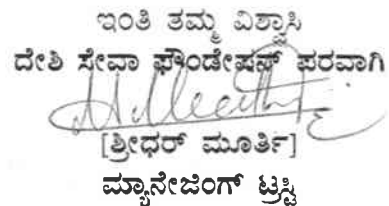 ಇಂತಿ ತಮ್ಮ ವಿಶ್ವಾಸಿ
ದೇಶಿ ಸೇವಾ ಫೌಂಡೇಷನ್ ಪರವಾಗಿ
[ಶ್ರೀಧರ್ ಮೂರ್ತಿ]
ಮ್ಯಾನೇಜಿಂಗ್ ಟ್ರಸ್ಟಿ